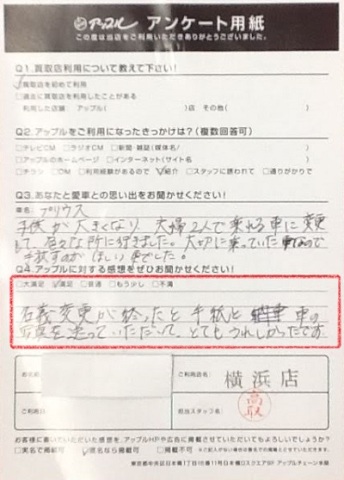 アップル アンケート用紙
この度は当店をご利用いただきありがとうございました。
Q1.買取店利用について教えて下さい!
☑買取店を初めて利用
□過去に買取店を利用したことがある
利用した店舗 アップル( )店 その他( )
Q2.アップルをご利用になったきっかけは?(複数回答可)
□テレビCM □ラジオCM □新聞・雑誌(媒体名/ )
□アップルのホームページ □インターネット(サイト名 )
□チラシ □DM □利用経験があるので ☑紹介 □スタッフに誘われて □通りがかりで
Q3.あなたと愛車との思い出をお聞かせください!
車名 プリウス
子供が大きくなり、夫婦2人で乗れる車に変更
して、色々な所に行きました。大切に乗っていた ので
手放すのが しい でした。
Q4.アップルに対する感想をぜひお聞かせください!
□大満足 ☑満足 □普通 □もう少し □不満
名義変更が終ったと手紙と 車の
写真を送っていただいて、とてもうれしかったです
お名前
ご利用店名
横浜店
ご利用日
担当スタッフ名
高取
お客様に書いていただいた感想を、アップルHPや広告などに掲載させていただいてもよろしいでしょうか?
□実名で掲載可 ☑匿名なら掲載可 □掲載不可
東京都中央区日本橋1丁目 日本橋スクエアビル アップルチェーン本部